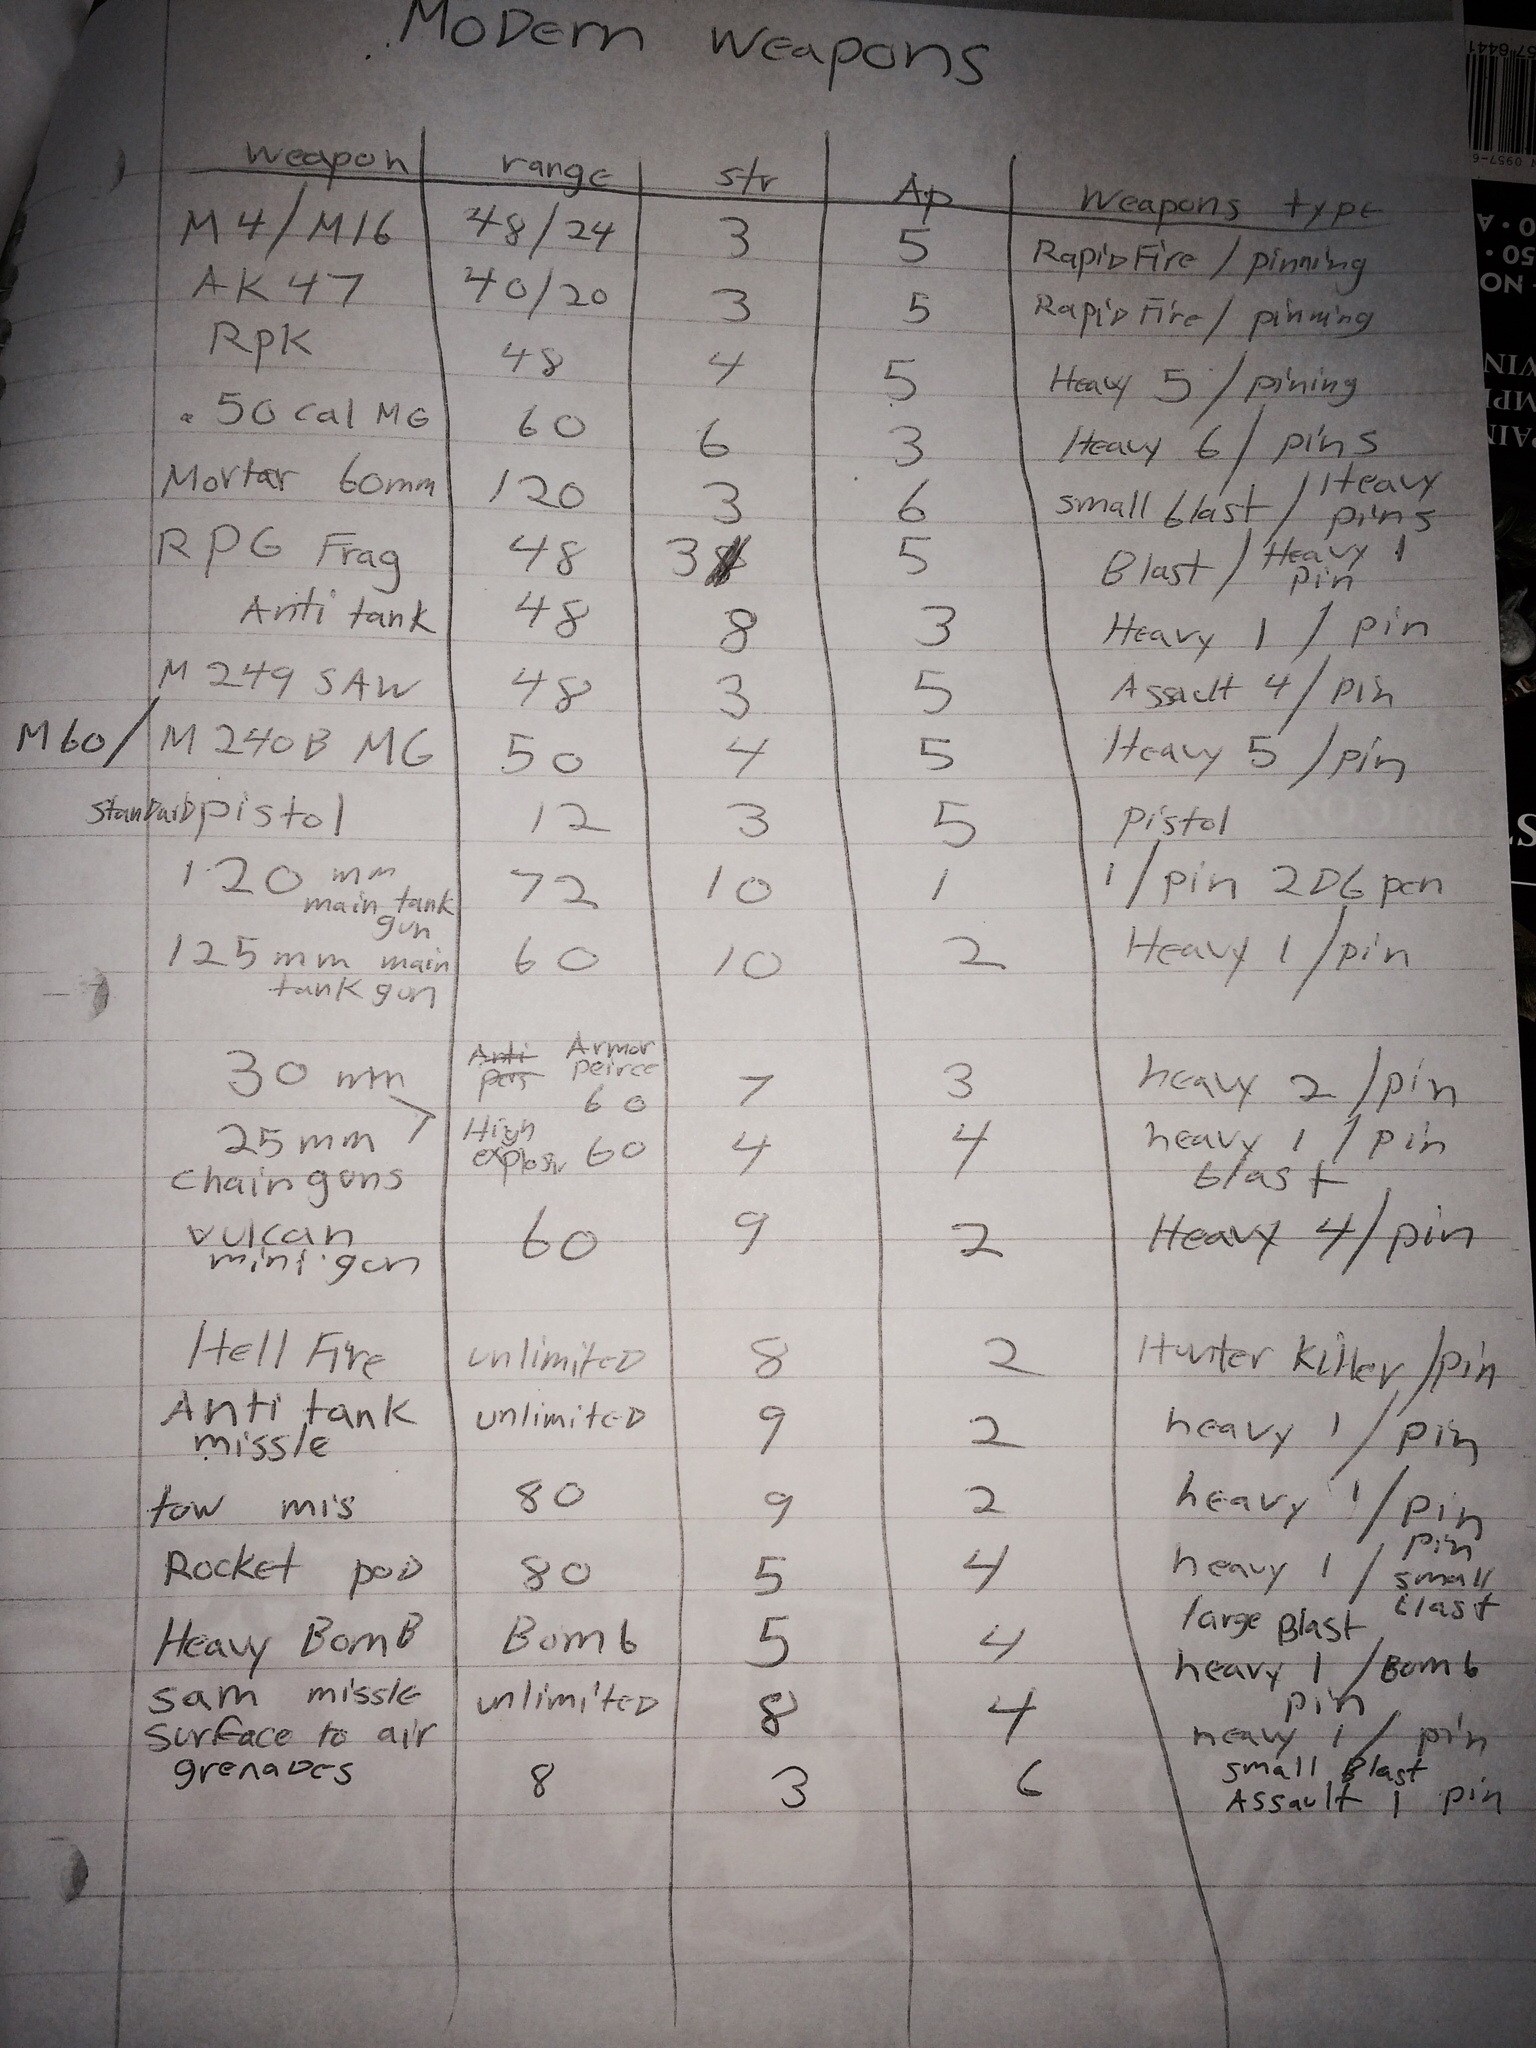 Modern Weapons
weapon range str Ap Weapons type
M4/M16 48/24 3 5 Rapid Fire / pinning
AK 47 40/20 3 5 Rapid Fire / pinning
Rpk 48 4 5 Heavy 5 / pining
.50 cal MG 60 6 3 Heavy 6 / pins
Mortar 60mm 120 3 6 small blast / Heavy
pins
RPG Frag 48 3 5 Blast / Heavy 1
pin
Anti tank 48 8 3 Heavy 1 / pin
M 249 SAW 48 3 5 Assault 4 / pin
M60/ M240B MG 50 4 5 Heavy 5 / pin
standard pistol 12 3 5 pistol
120 mm 72 10 1 1/pin 2D6 pen
main tank
gun
125 mm main 60 10 2 Heavy 1 / pin
tank gun
Anti Armor
30 mm pers peirce 7 3 heavy 2 / pin
60
25 mm High 60 4 4 heavy 1 / pin
explosiv
chain guns blast
vulcan 60 9 2 Heavy 4 / pin
mini gun
Hell Fire unlimited 8 2 Hunter Killer / pin
Anti tank unlimited 9 2 heavy 1 / pin
missle
tow mis 80 9 2 heavy 1 / pin
Rocket pod 80 5 4 heavy 1 / pin
small
blast
large Blast
Heavy Bomb Bomb 5 4 heavy 1 / Bomb
pin
sam missle unlimited 8 4 heavy 1 / pin
surface to air
grenades 8 3 6 small Blast
Assault 1 pin